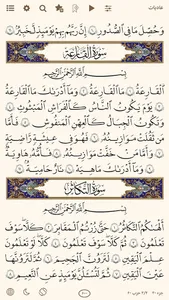 عادیات
وَحُصِّلَ مَا فِي الصُّدُورِ ۝ إِنَّ رَبَّهُم بِهِمْ يَوْمَئِذٍ لَّخَبِيرٌ ۝
سورة القارعة
بِسْمِ اللَّهِ الرَّحْمَنِ الرَّحِيمِ
الْقَارِعَةُ ۝ مَا الْقَارِعَةُ ۝ وَمَا أَدْرَاكَ مَا الْقَارِعَةُ
۝ يَوْمَ يَكُونُ النَّاسُ كَالْفَرَاشِ الْمَبْثُوثِ ۝
وَتَكُونُ الْجِبَالُ كَالْعِهْنِ الْمَنفُوشِ ۝ فَأَمَّا مَن
ثَقُلَتْ مَوَازِينُهُ ۝ فَهُوَ فِي عِيشَةٍ رَّاضِيَةٍ
۝ وَأَمَّا مَنْ خَفَّتْ مَوَازِينُهُ ۝ فَأُمُّهُ هَاوِيَةٌ
۝ وَمَا أَدْرَاكَ مَا هِيَهْ ۝ نَارٌ حَامِيَةٌ ۝
سورة التكاثر
بِسْمِ اللَّهِ الرَّحْمَنِ الرَّحِيمِ
أَلْهَاكُمُ التَّكَاثُرُ ۝ حَتَّى زُرْتُمُ الْمَقَابِرَ ۝ كَلَّا سَوْفَ
تَعْلَمُونَ ۝ ثُمَّ كَلَّا سَوْفَ تَعْلَمُونَ ۝ كَلَّا لَوْ تَعْلَمُونَ
عِلْمَ الْيَقِينِ ۝ لَتَرَوُنَّ الْجَحِيمَ ۝ ثُمَّ لَتَرَوُنَّهَا
عَيْنَ الْيَقِينِ ۝ ثُمَّ لَتُسْأَلُنَّ يَوْمَئِذٍ عَنِ النَّعِيمِ ۝